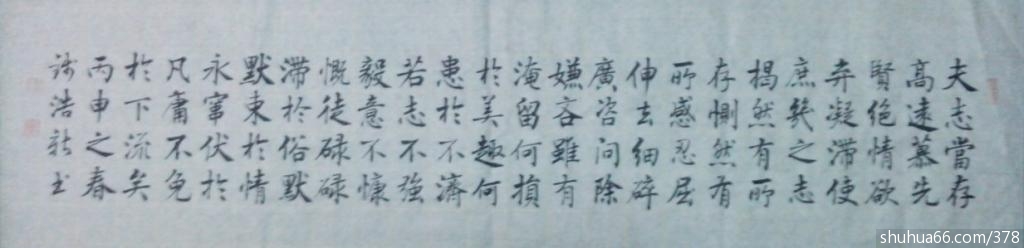 夫志當存
高遠慕先
賢絕情欲
弃凝滯使
庶幾之志
揭然有所
存惻然有
所感忍屈
伸去細碎
廣咨問除
嫌吝雖有
淹留何損
於美趣何
患於不濟
若志不強
毅意不慷
慨徒碌碌
滯於俗默
默束於情
永窜伏於
凡庸不免
於下流矣
丙申之春
浩书
shuhua66.com/378